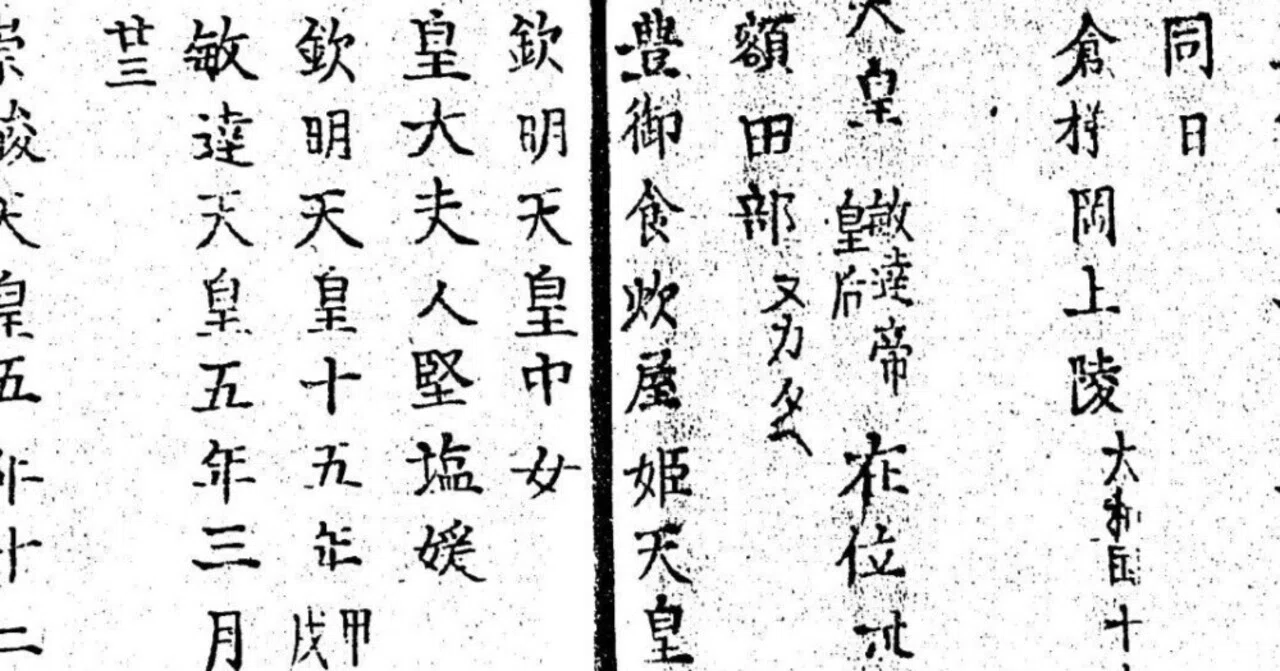 同日
倉梯岡上陵
大和国十
天皇
敏達帝
皇后
在位
額田部
又乃名
豊御食炊屋姫天皇
欽明天皇中女
皇大夫人堅塩媛
欽明天皇十五年
甲
戌
敏達天皇五年三月
廿三
崇峻天皇五年十二